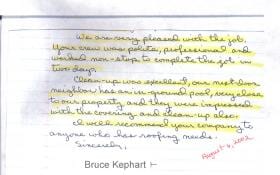 We are very pleased with the job.
Your crew was polite, professional and
worked non-stop to complete the job in
two days.
Clean-up was excellent, our next door
neighbor has an in-ground pool, very close
to our property and they were impressed
with the covering and clean-up also.
I will recommend your company to
anyone who has roofing needs.
Sincerely,
August 6, 2002
Bruce Kephart